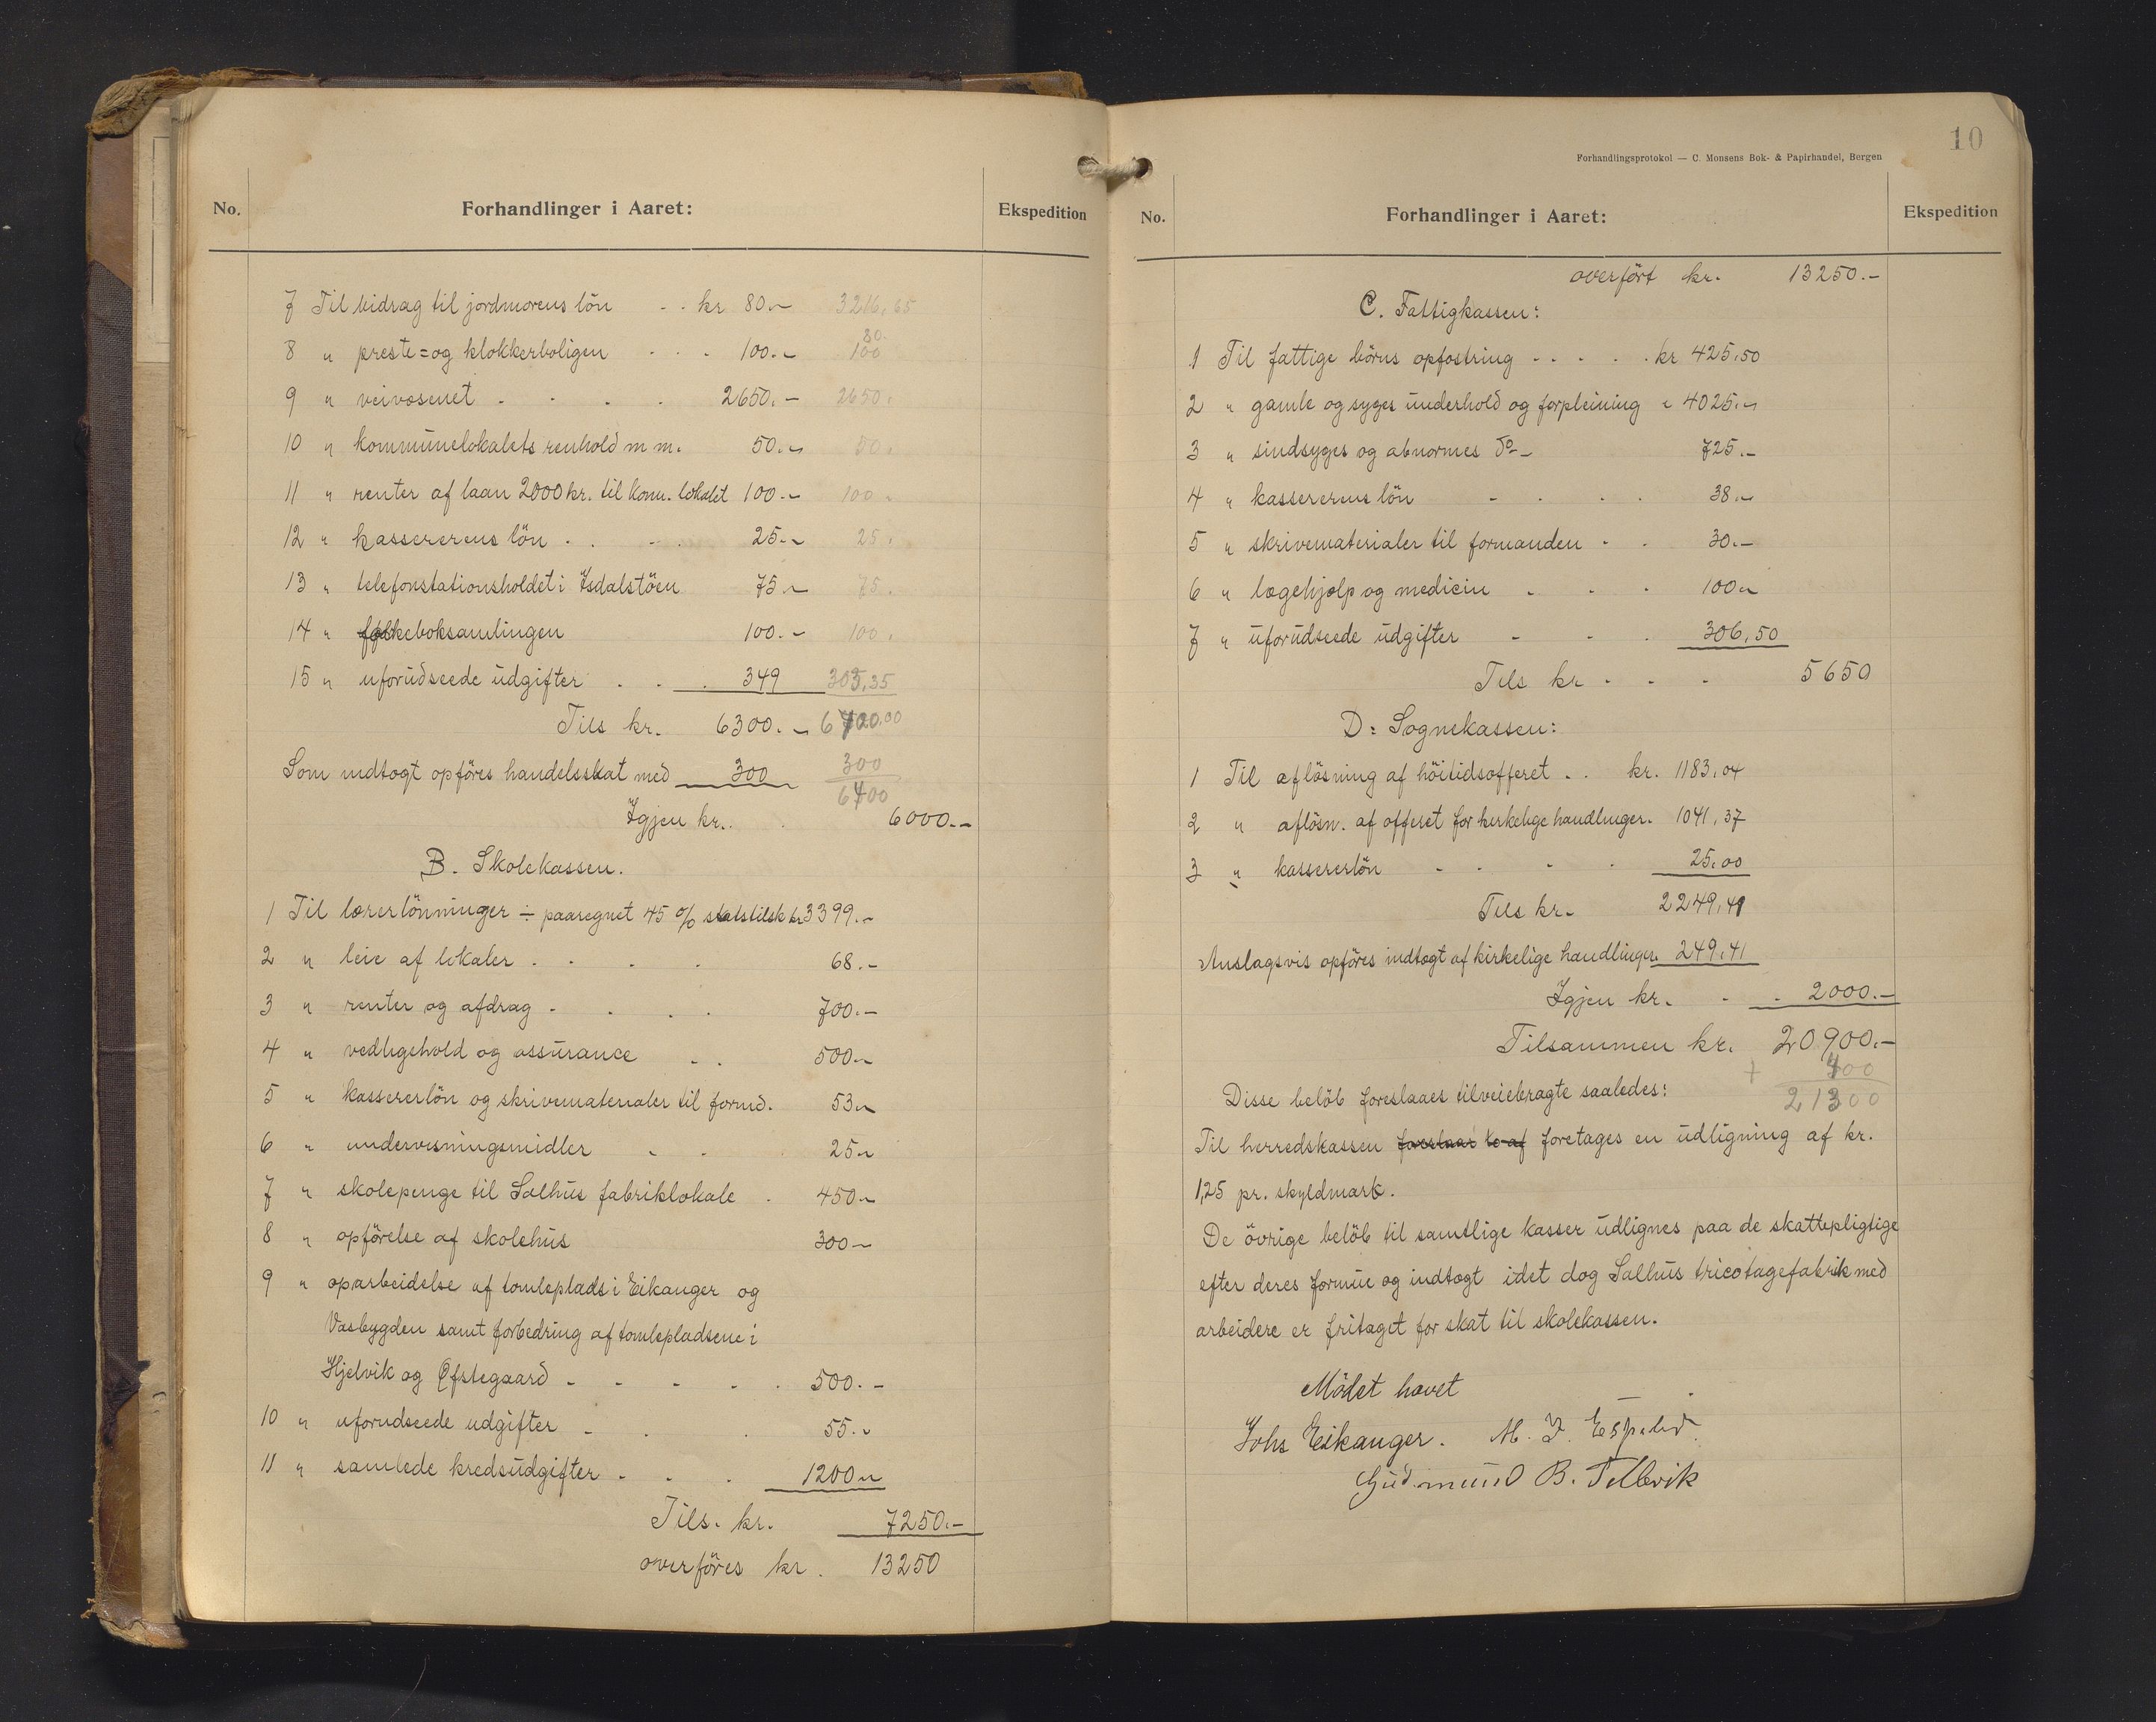 No. Forhandlinger i Aaret: Ekspedition
7 Til bidrag til jordmorens lön - - kr 80.- 3216,65
8 " preste= og klokkerboligen - - - 100.- 80. 100
9 " veivæsenet - - - - 2650.- 2650.
10 " kommunelokalets renhold m m. 50.- 50.
11 " renter af laan 2000 kr. til kom. lokalet 100.- 100.
12 " kassererens lön - - - 25.- 25.
13 " telefonstationsholdet i Isdalstöen 75.- 75.
14 " folkeboksamlingen 100.- 100.
15 " uforudseede udgifter - - - 349 303,35
Tils kr. 6300.- 6700.00
Som indtægt opföres handelsskat med 300 300
6400
Igjen kr. . 6000.-
B. Skolekassen.
1 Til lærerlönninger ÷ paaregnet 45 % statstilsk kr 3399.-
2 " leie af lokaler - - - - 68.-
3 " renter og afdrag - - - - 700.-
4 " vedligehold og assurance - - 500.-
5 " kassererlön og skrivematerialer til formd. 53.-
6 " undervisningsmidler - - 25.-
7 " skolepenge til Salhus fabriklokale - 450.-
8 " opförelse af skolehus 300.-
9 " oparbeidelse af tomteplads i Eikanger og
Vasbygden samt forbedring af tomtepladsene i
Hjelvik og Øfstegaard - - - - - 500.-
10 " uforudseede udgifter - - - 55.-
11 " samlede kredsudgifter - - - 1200.-
Tils. kr. 7250.-
overföres kr. 13250
10
Forhandlingsprotokol — C. Monsens Bok- & Papirhandel, Bergen
No. Forhandlinger i Aaret: Ekspedition
overfört kr. 13250.-
C. Fattigkassen:
1 Til fattige börns opfostring - - - - - kr 425,50
2 " gamle og syges underhold og forpleining " 4025.-
3 " sindsyges og abnormes do - 725.-
4 " kassererens lön - - - - 38.-
5 " skrivematerialer til formanden - - 30.-
6 " lægehjælp og medicin - - - 100.-
7 " uforudseede udgifter - - - 306,50
Tils kr - - - 5650
D: Sognekassen:
1 Til aflösning af höitidsofferet . . kr. 1183,04
2 " aflösn. af offeret for kirkelige handlinger. 1041,37
3 " kassererlön - - - - 25,00
Tils kr. 2249,41
Anslagsvis opföres indtægt af kirkelige handlinger 249,41
Igjen kr. - - 2000.-
Tilsammen kr. 20900.-
+ 400
Disse belöb foreslaaes tilveiebragte saaledes: 21300
Til herredskassen foreslaar foretages en udligning af kr.
1,25 pr. skyldmark.
De övrige belöb til samtlige kasser udlignes paa de skattepligtige
efter deres formue og indtægt idet dog Salhus tricotagefabrik med
arbeidere er fritaget for skat til skolekassen.
Mödet hævet
Johs Eikanger. M. J. Espelid.
Gudmund B. Tellevik